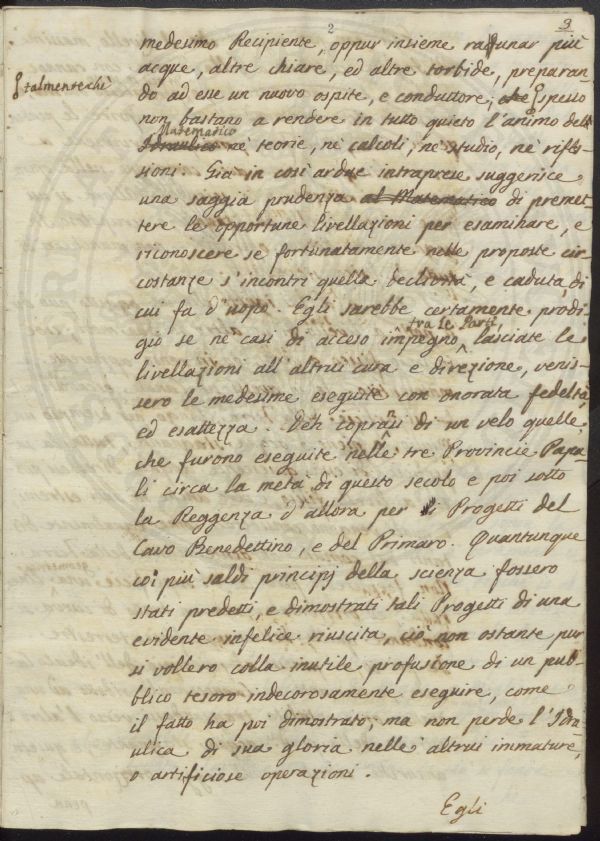 2
9
medesimo Recipiente, oppur insieme radunar più
acque, altre chiare, ed altre torbide, preparan-
do ad esse un nuovo ospite, e conduttore; che spesso
talmentechè
non bastano a rendere in tutto quieto l'animo dell
Matematico
Idraulico nè teorie, nè calcoli, nè studio, nè rifles-
sioni. Già in così ardue intraprese suggerisce
una saggia prudenza al Matematico di premet-
tere le opportune livellazioni per esaminare, e
riconoscere se fortunatamente nelle proposte cir-
costanze s'incontri quella declività, e caduta, di
cui fa d'uopo. Egli sarebbe certamente prodi-
tra le Parti
gio se ne' casi di acceso impegno, lasciate le
livellazioni all'altrui cura e direzione, venis-
sero le medesime eseguite con onorata fedeltà,
ed esattezza. Deh copransi di un velo quelle,
che furono eseguite nelle tre Provincie Papa-
li circa la metà di questo secolo e poi sotto
la Reggenza d'allora per i Progetti del
Cavo Benedettino, e del Primaro. Quantunque
coi più saldi principj della scienza fossero
stati predetti, e dimostrati tali Progetti di una
evidente infelice riuscita, ciò non ostante pur
si vollero colla inutile profusione di un pub-
blico tesoro indecorosamente eseguire, come
il fatto ha poi dimostrato; ma non perde l'Idra-
ulica di sua gloria nelle altrui immature,
o artificiose operazioni.
Egli